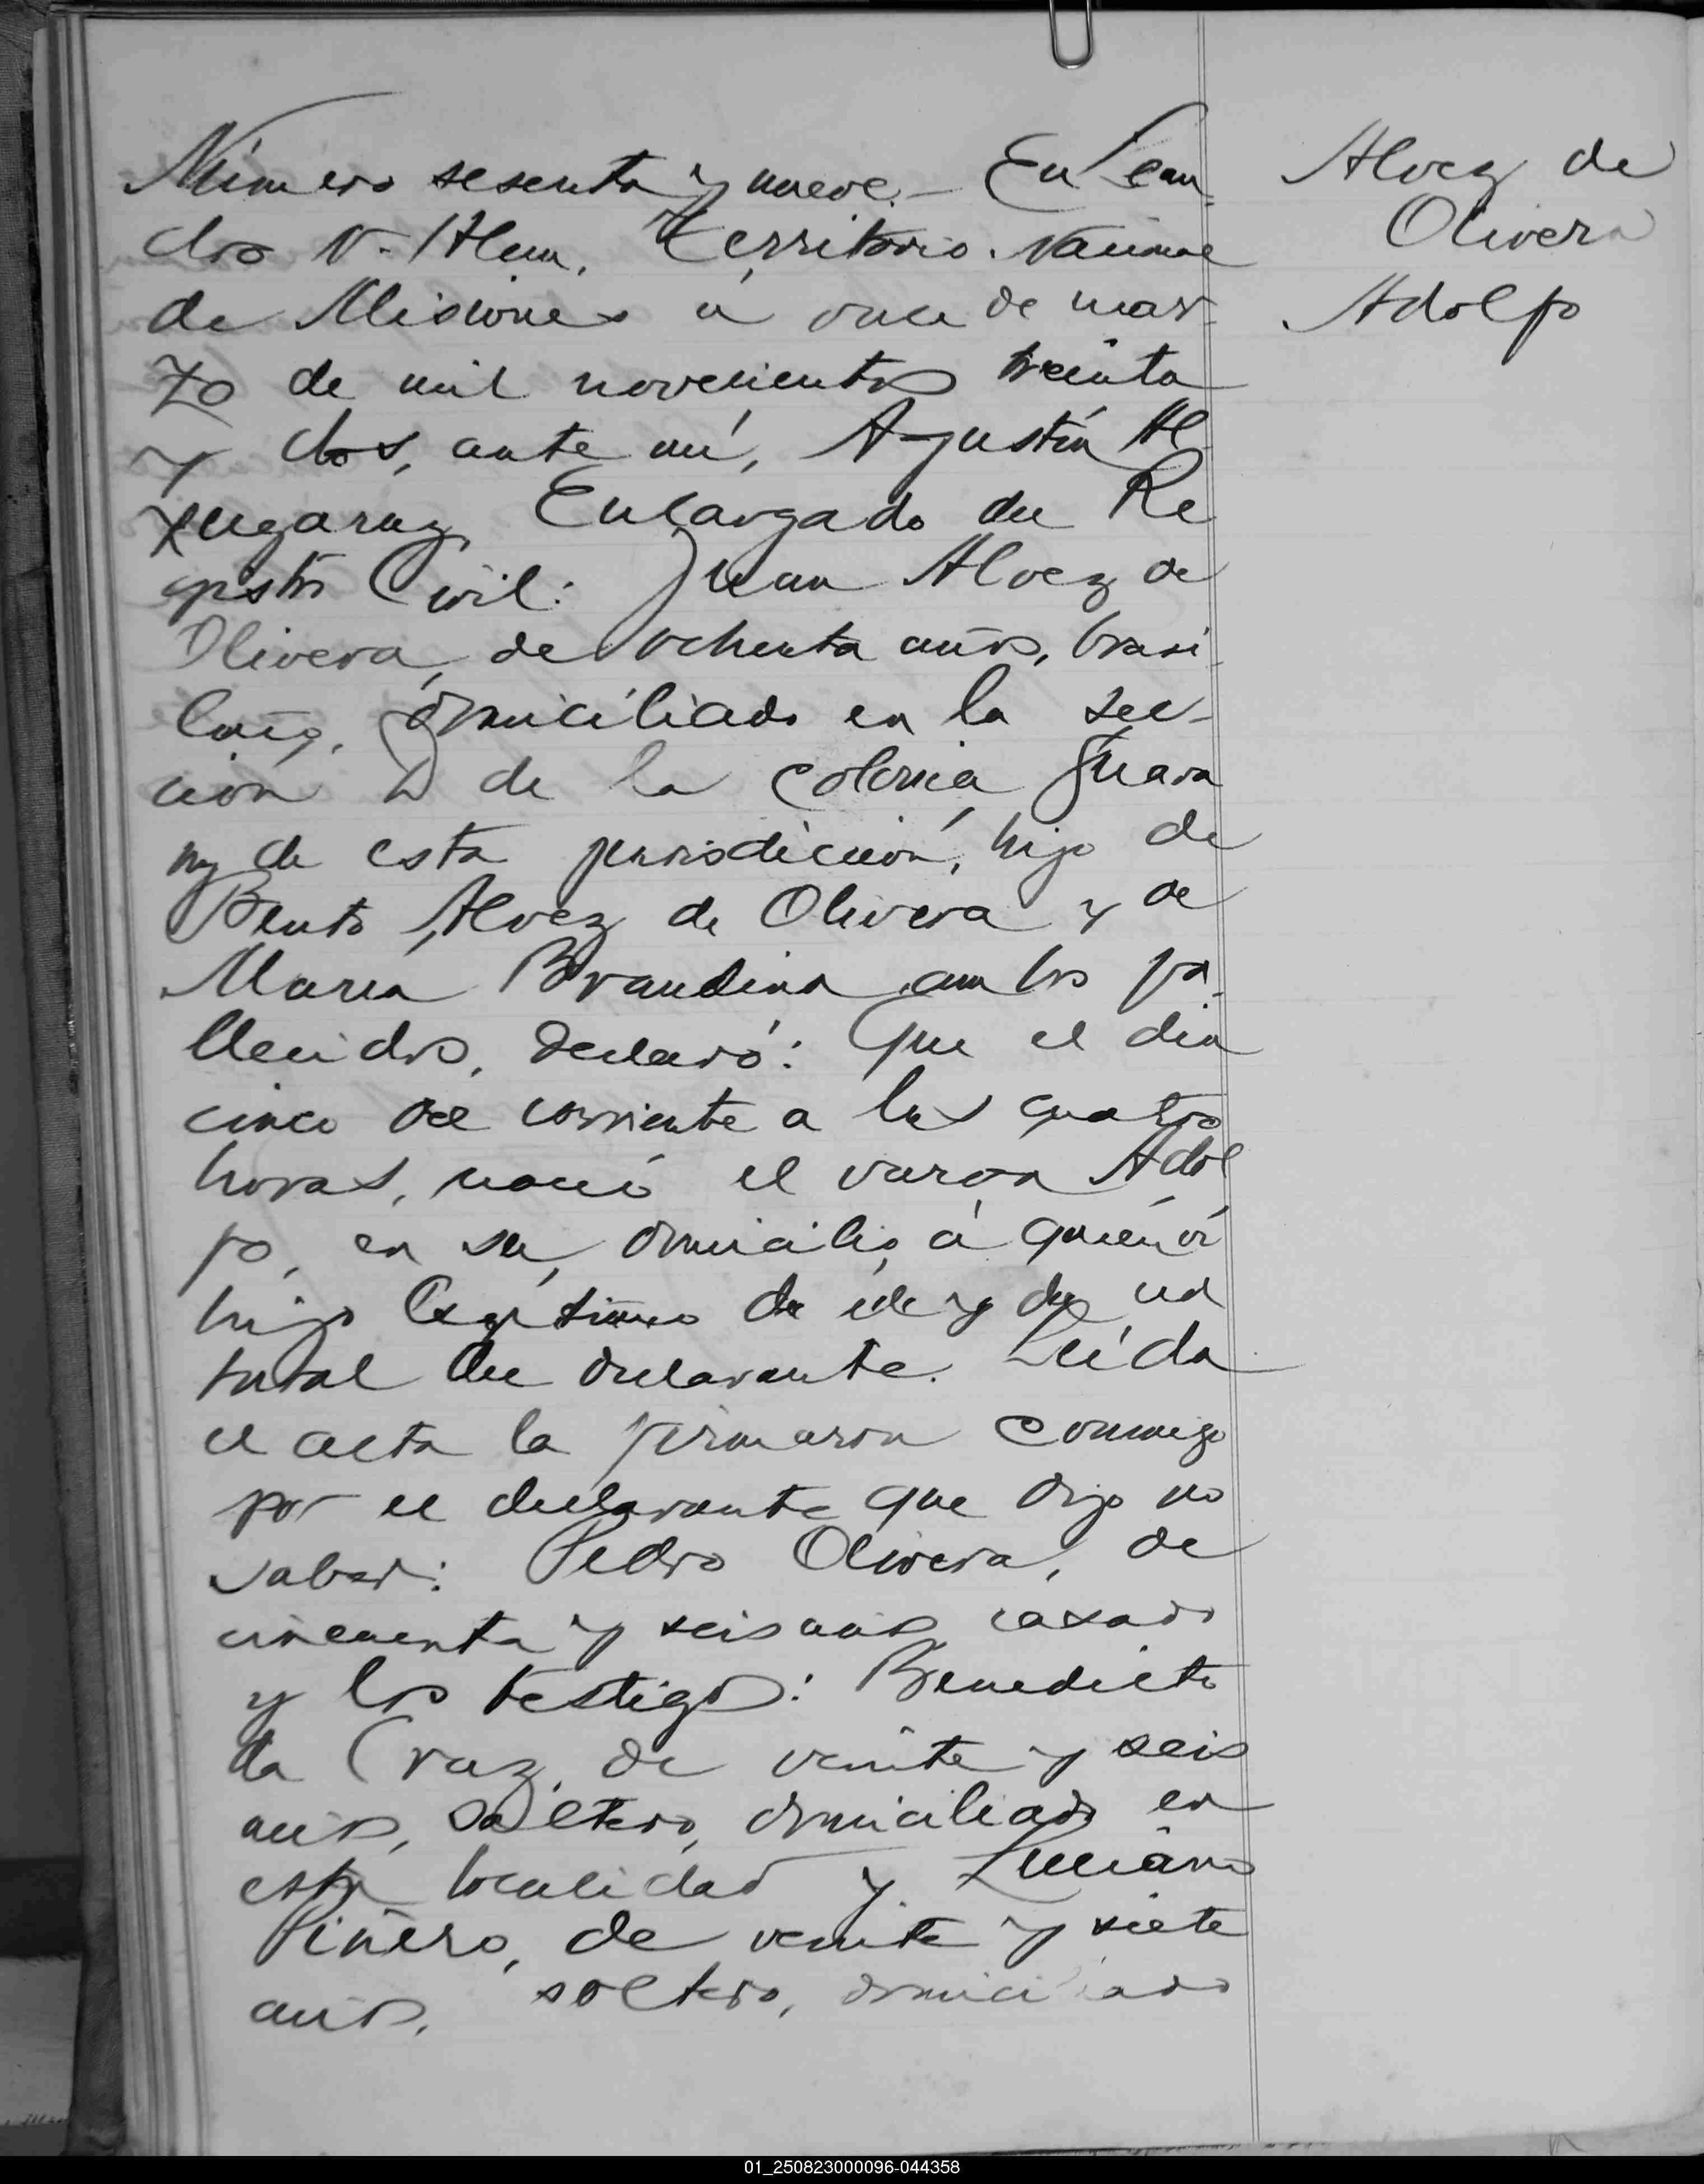 Número sesenta y nueve.- En Lean-
dro N. Alem, Territorio Nacional
de Misiones a once de mar-
zo de mil novecientos treinta
y dos, ante mí, Agustín Al-
Encargado del Re
gistro Civil: Juan Alvez de
Olivera, de ochenta años, brasi
lero, domiciliado en la sec-
ción D de la Colonia Guara
ny de esta jurisdicción, hijo de
Bento Alvez de Olivera y de
Maria Brandina ambos fa-
llecidos, declaró: Que el día
cinco del corriente a las cuatro
horas, nació el varón Adol
fo, en su domicilio, á quien vi
hijo legítimo de él y de
del declarante. Leída
el acta la firmaron conmigo
por el declarante que dijo no
saber: Pedro Olivera, de
cincuenta y seis años casado
y los testigos: Benedicto
da Cruz, de veinte y seis
años, soltero, domiciliado en
esta localidad y Luciano
Piñero, de veinte y siete
años, soltero, domiciliado
Alvez de
Olivera
Adolfo
01_250823000096-044358